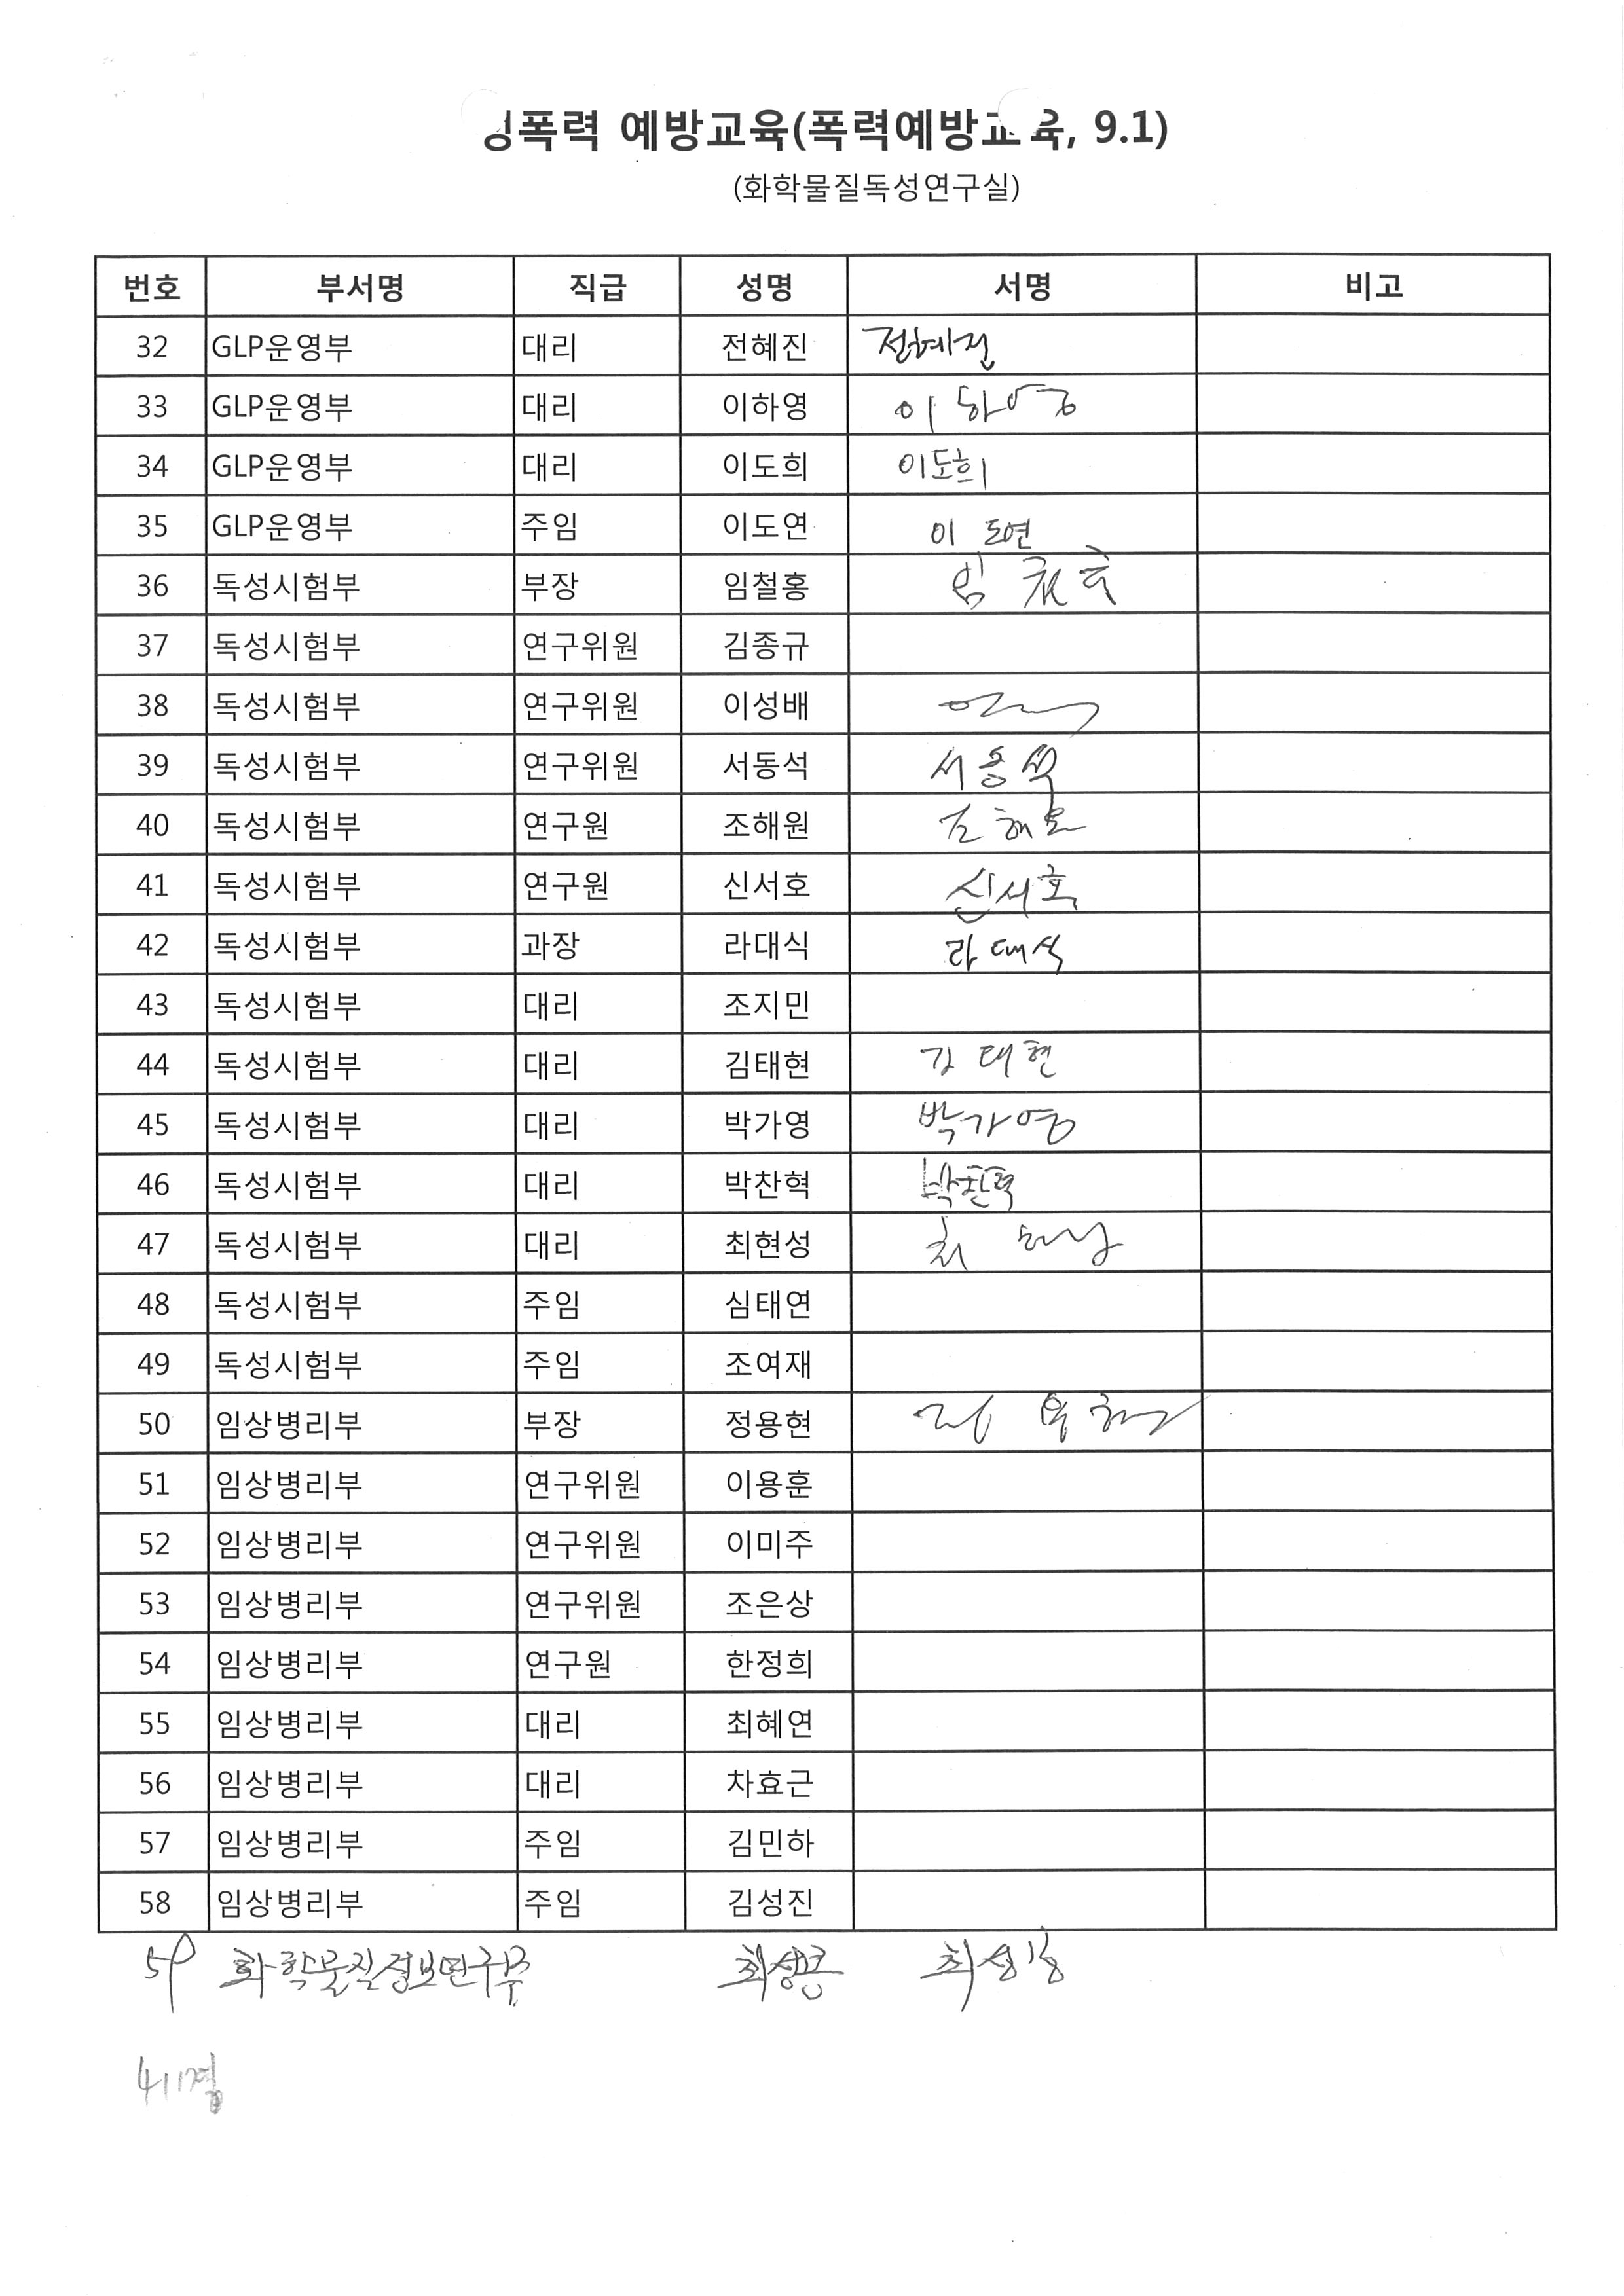 성폭력 예방교육(폭력예방교육, 9.1)
(화학물질독성연구실)
번호 부서명 직급 성명 서명 비고
32 GLP운영부 대리 전혜진 전혜진
33 GLP운영부 대리 이하영 이하영
34 GLP운영부 대리 이도희 이도희
35 GLP운영부 주임 이도연 이도연
36 독성시험부 부장 임철홍 임철홍
37 독성시험부 연구위원 김종규
38 독성시험부 연구위원 이성배
39 독성시험부 연구위원 서동석 서동석
40 독성시험부 연구원 조해원 조해원
41 독성시험부 연구원 신서호 신서호
42 독성시험부 과장 라대식 라대식
43 독성시험부 대리 조지민
44 독성시험부 대리 김태현 김태현
45 독성시험부 대리 박가영 박가영
46 독성시험부 대리 박찬혁 박찬혁
47 독성시험부 대리 최현성 최현성
48 독성시험부 주임 심태연
49 독성시험부 주임 조여재
50 임상병리부 부장 정용현 정용현
51 임상병리부 연구위원 이용훈
52 임상병리부 연구위원 이미주
53 임상병리부 연구위원 조은상
54 임상병리부 연구원 한정희
55 임상병리부 대리 최혜연
56 임상병리부 대리 차효근
57 임상병리부 주임 김민하
58 임상병리부 주임 김성진
59 화학물질정보연구부 최성봉 최성봉